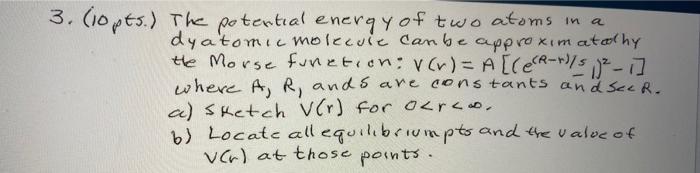 3. (10 pts.) The potential energy of two atoms in a
dyatomic molecule can be approximated by
the Morse function: V(r) = A [(e^{(R-r)/s} - 1)² - 1]
where A, R, and s are constants and s << R.
a) Sketch V(r) for 0 < r < ∞.
b) Locate all equilibrium pts and the value of
V(r) at those points.